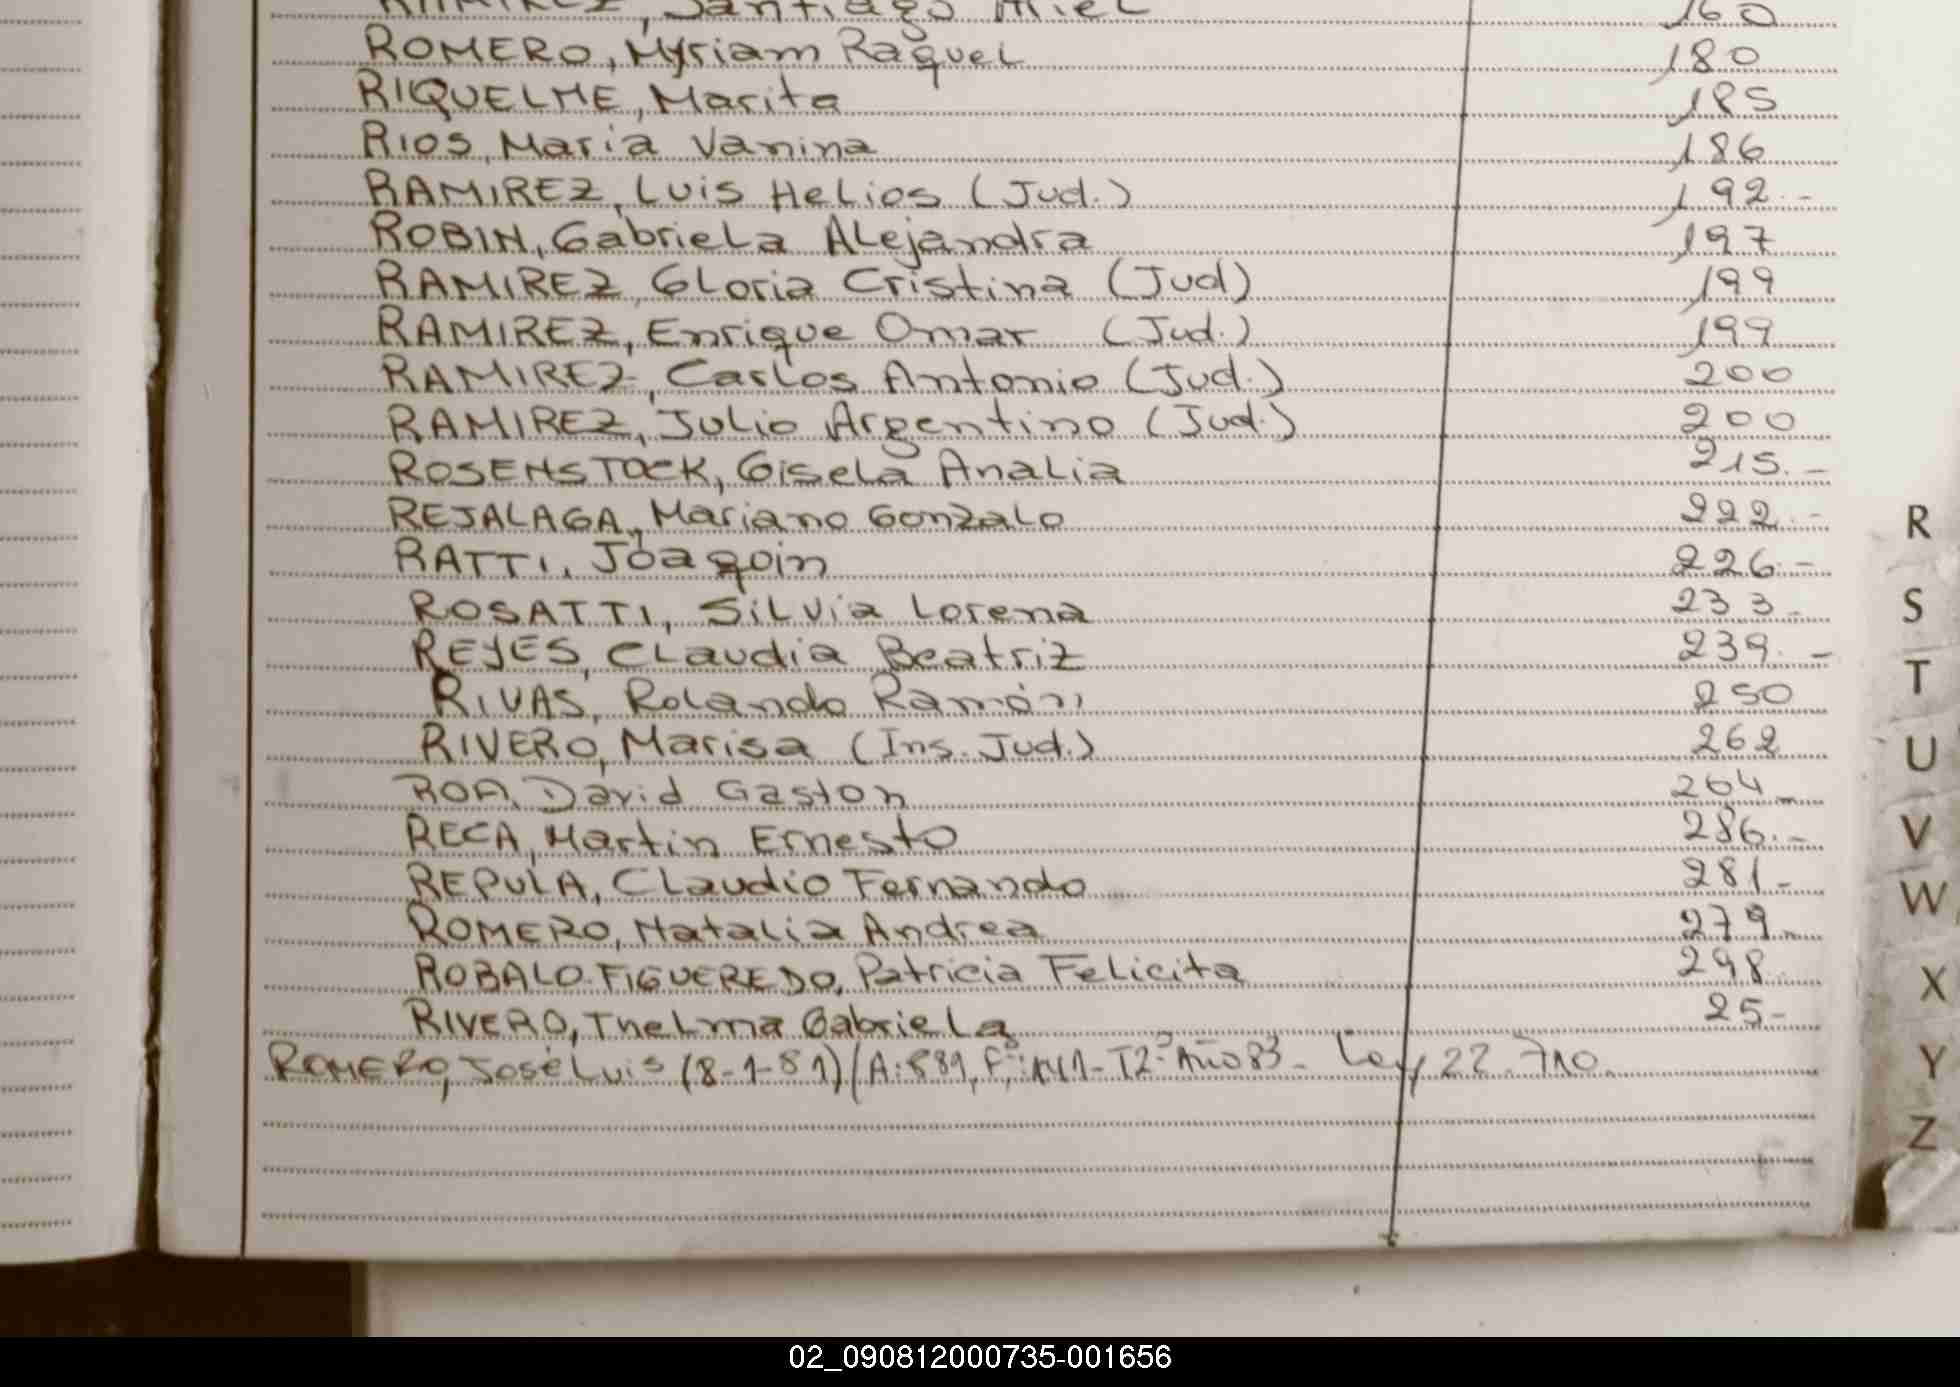 RAMIREZ, Santiago Ariel 160
ROMERO, Myriam Raquel 180
RIQUELME, Marita 185
RIOS, Maria Vanina 186
RAMIREZ, Luis Helios (Jud.) 192.-
ROBIN, Gabriela Alejandra 197
RAMIREZ, Gloria Cristina (Jud) 199
RAMIREZ, Enrique Omar (Jud.) 199
RAMIREZ, Carlos Antonio (Jud.) 200
RAMIREZ, Julio Argentino (Jud.) 200
ROSENSTOCK, Gisela Analia 215.-
REJALAGA, Mariano Gonzalo 222.-
RATTI, Joaquin 226.-
ROSATTI, Silvia Lorena 233.-
REYES, Claudia Beatriz 239.-
RIVAS, Rolando Ramón 250
RIVERO, Marisa (Ins. Jud.) 262
ROA, David Gaston 264-
RECA, Martin Ernesto 286.-
REPULA, Claudio Fernando 281-
ROMERO, Natalia Andrea 279-
ROBALO FIGUEREDO, Patricia Felicita 298-
RIVERO, Thelma Gabriela 25-
ROMERO, José Luis (8-1-81) (A: 581, Fº: 141- T2º Año 83 - Ley 22.710.
R
S
T
U
V
W
X
Y
Z
02_090812000735-001656